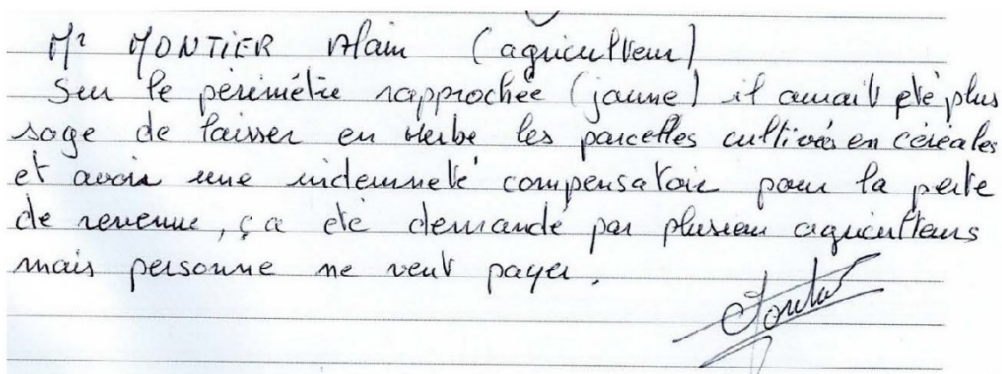 Mr MONTIER Alain (agriculteur)
Sur le périmètre rapprochée (jaune) il aurait été plus
sage de laisser en herbe les parcelles cultivées en céréales
et avoir une indemneté compensatoire pour la perte
de revenue, ça été demandé par plusieurs agriculteurs
mais personne ne veut payer.